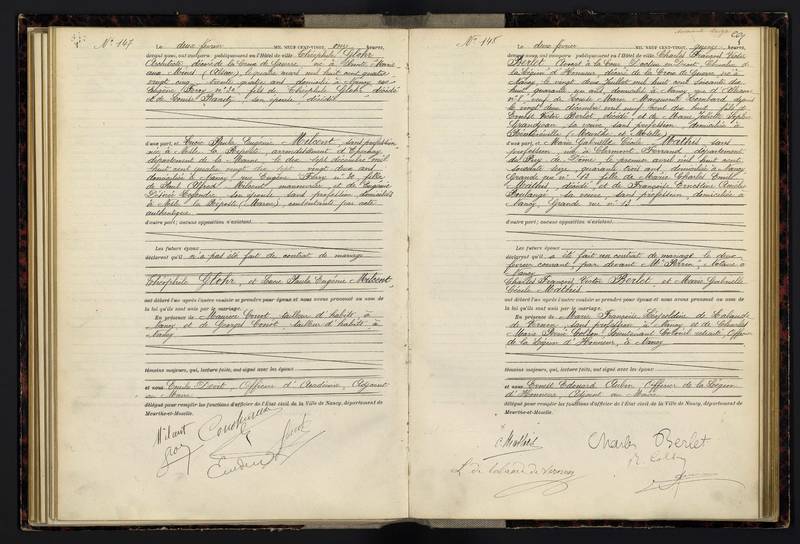 N° 147
Le deux février MIL NEUF CENT-VINGT, onze heures,
devant nous, ont comparu publiquement en l'Hôtel de ville: Théophile Glohr
Architecte, décoré de la Croix de Guerre, né à Sainte Marie
aux Mines (Alsace), le quatre mars mil huit cent quatre
vingt cinq, trente quatre ans, domicilié à Nancy, rue
Eugène Ferry n° 30, fils de Théophile Glohr, décédé
et de Louise son épouse, décédée
d'une part, et Lucie Paula Eugénie Milcent, sans profession
née à Nesle la Reposte, arrondissement d'Epernay
département de la Marne, le dix sept décembre mil
huit cent quatre vingt dix sept, vingt deux ans,
domiciliée à Nancy, rue Eugène Ferry n° 30, fille
de Paul Alfred Milcent, manouvrier, et de Eugénie
Désirée son épouse, sans profession, domiciliés
à Nesle la Reposte (Marne), consentants par acte
authentique
d'autre part; aucune opposition n'existant.
Les futurs époux
déclarent qu'il n'a pas été fait de contrat de mariage
Théophile Glohr, et Lucie Paula Eugénie Milcent,
ont déclaré l'un après l'autre vouloir se prendre pour époux et nous avons prononcé au nom de
la loi qu'ils sont unis par le mariage.
En présence de Maurice Conot, tailleur d'habits, à
Nancy, et de Georges Conot, tailleur d'habits, à
Nancy
témoins majeurs, qui, lecture faite, ont signé avec les époux
et nous Emile Officier d'Académie, Adjoint
au Maire
délégué pour remplir les fonctions d'officier de l'État civil de la Ville de Nancy, département de
Meurthe-et-Moselle.
Milcent
N° 148
Le deux février MIL NEUF CENT-VINGT, quinze heures,
devant nous, ont comparu publiquement en l'Hôtel de ville: Charles François Victor
Berlet Avocat à la Cour, Docteur en Droit, Chevalier de
la Légion d'Honneur, décoré de la Croix de Guerre, né à
Nancy, le vingt deux Juillet mil huit cent soixante dix
huit, quarante un ans, domicilié à Nancy, rue d'Alliance
veuf de Marie Marguerite Lombard, depuis
le vingt deux décembre mil neuf cent dix huit, fils de
Ernest Victor Berlet, décédé, et de Marie Juliette
Grandjean, sa veuve, sans profession, domiciliée à
(Meurthe et Moselle)
d'une part, et Marie Gabrielle Cécile Mathis, sans
profession, née à Clermont-Ferrand, département
du Puy de Dôme, le premier avril mil huit cent
soixante seize, quarante trois ans, domiciliée à Nancy,
Grande rue n° 13, fille de Marie Charles Emile
Mathis, décédé, et de Françoise Ernestine Amélie
Boulangé, sa veuve, sans profession, domiciliée à
Nancy, Grande rue n° 13
d'autre part; aucune opposition n'existant.
Les futurs époux
déclarent qu'il a été fait un contrat de mariage le deux
février courant, par devant Me Perrin, Notaire à
Nancy
Charles François Victor Berlet et Marie Gabrielle
Cécile Mathis
ont déclaré l'un après l'autre vouloir se prendre pour époux et nous avons prononcé au nom de
la loi qu'ils sont unis par le mariage.
En présence de Marie Françoise Léopoldine de Lalande
de Vernon, sans profession, à Nancy, et de Charles
Marie René Lieutenant Colonel retraité, Officier
de la Légion d'Honneur, à Nancy
témoins majeurs, qui, lecture faite, ont signé avec les époux
et nous Ernest Edouard Aubin, Officier de la Légion
d'Honneur, Adjoint au Maire
délégué pour remplir les fonctions d'officier de l'État civil de la Ville de Nancy, département de
Meurthe-et-Moselle.
C. Mathis
Charles Berlet
L. de Lalande de Vernon